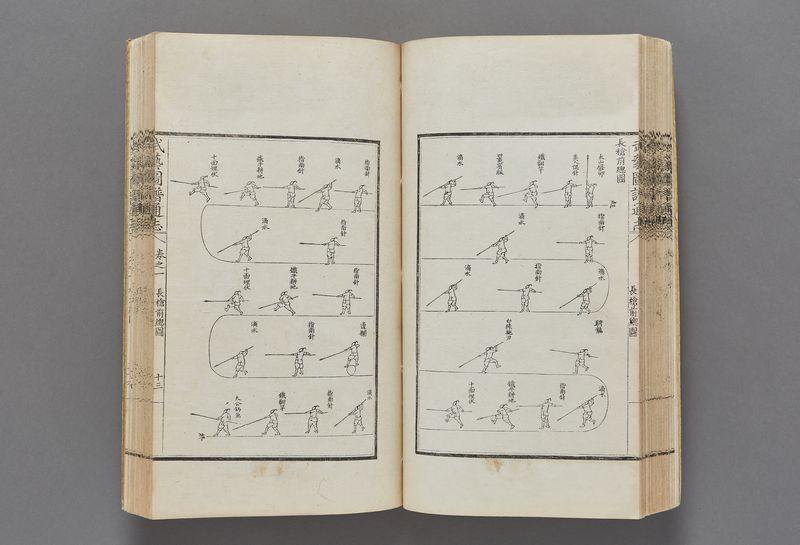 武藝圖譜通志
長槍前總圖
長槍前總圖
太山壓卵
美人認針
鐵翻竿
四夷賓服
滴水
指南針
滴水
滴水
指南針
滴水
騎龍
白猿拖刀
滴水
指南針
鐵牛耕地
十面埋伏
指南針
滴水
指南針
鐵牛耕地
十面埋伏
指南針
滴水
指南針
鐵牛耕地
十面埋伏
邊攔
指南針
滴水
滴水
指南針
鐵翻竿
太公釣魚
武藝圖譜通志
卷之一
長槍前總圖
十三